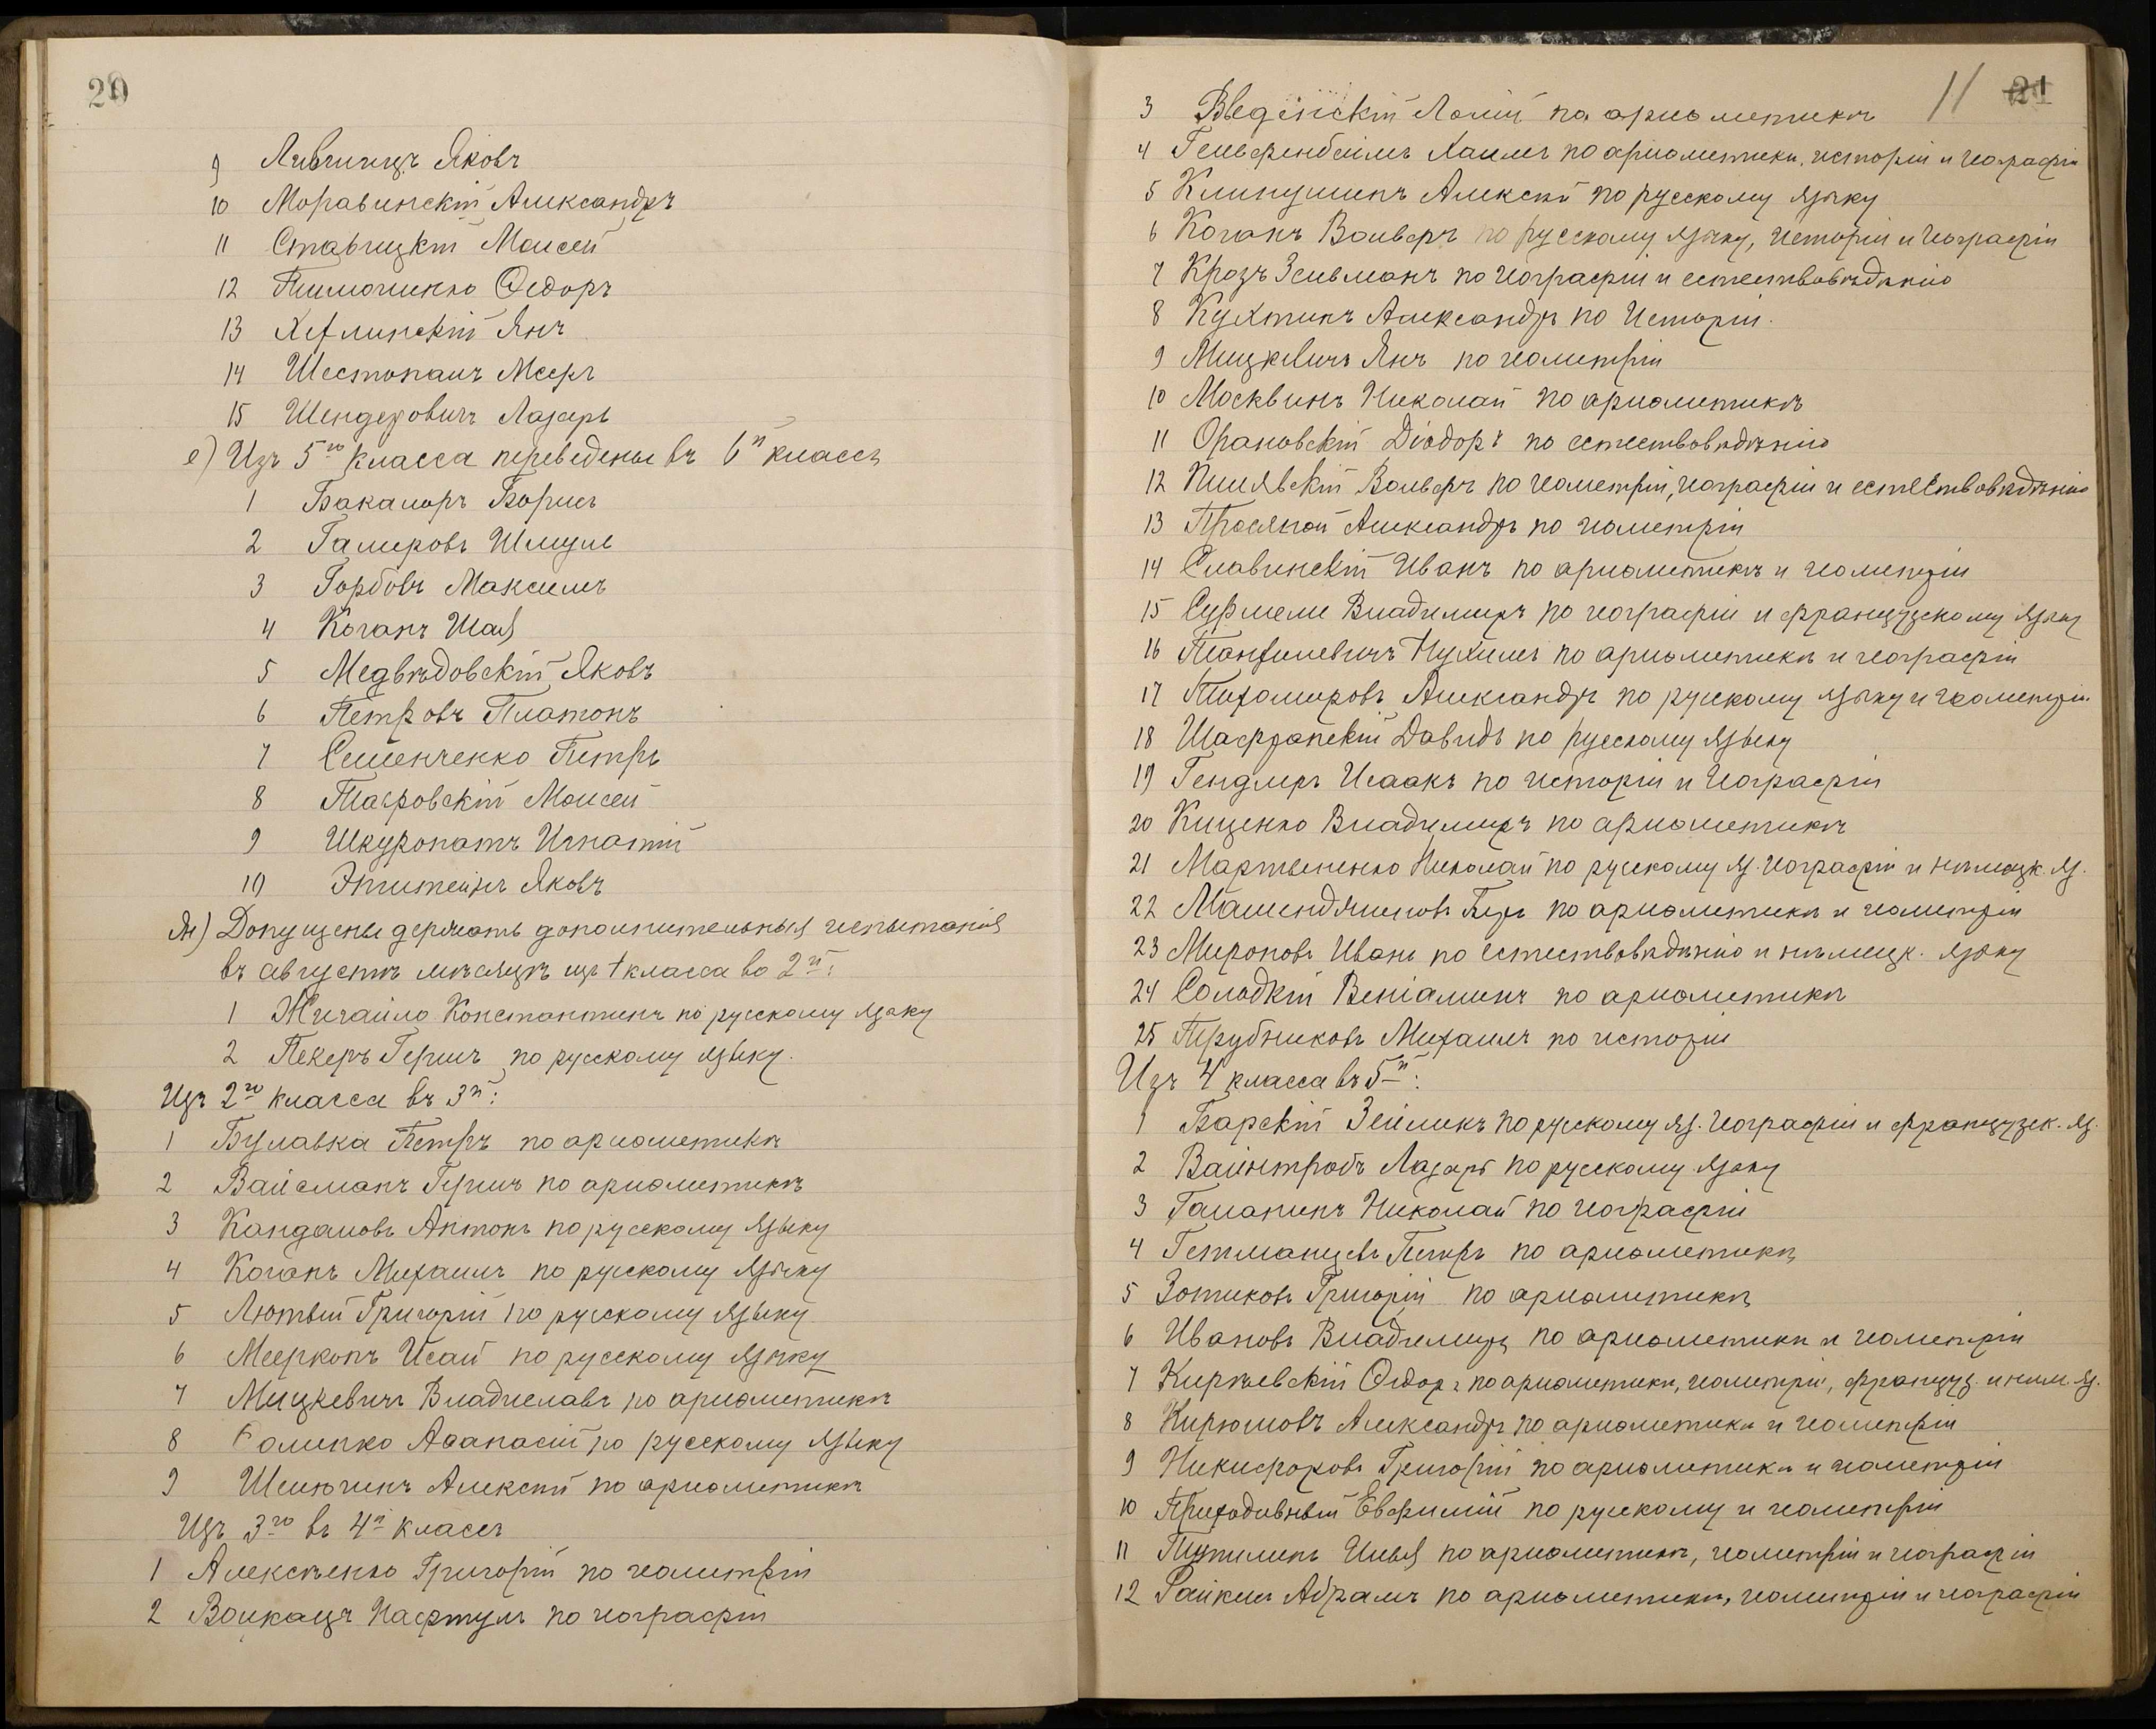 20
9 Лившицъ Яковъ
10 Моравинскій Александръ
11 Ставицкій Моисей
12 Тимошенко Ѳедоръ
13 Хефлинскій Янъ
14 Шестопалъ Мееръ
15 Шендеровичъ Лазарь
е) Изъ 5го класса переведены въ 6й классъ
1 Бакаляръ Борисъ
2 Гамеровъ Шмуль
3 Горбовъ Максимъ
4 Коганъ Шая
5 Медвѣдовскій Яковъ
6 Петровъ Платонъ
7 Семенченко Петръ
8 Таировскій Моисей
9 Шкуропатъ Игнатій
10 Эпштейнъ Яковъ
ж) Допущены держать дополнительныя испытанія
въ августѣ мѣсяцѣ изъ 1 класса во 2й:
1 Жигайло Константинъ по русскому языку
2 Пекеръ Гершъ по русскому языку.
Изъ 2го класса въ 3й:
1 Булавка Петръ по ариѳметикѣ
2 Вайсманъ Гершъ по ариѳметикѣ
3 Кандаловъ Антонъ по русскому языку
4 Коганъ Михаилъ по русскому языку
5 Лютый Григорій по русскому языку
6 Мееркопъ Исай по русскому языку
7 Мицкевичъ Владиславъ по ариѳметикѣ
8 Фоменко Аѳанасій по русскому языку
9 Шелюгинъ Алексѣй по ариѳметикѣ
Изъ 3го въ 4й классъ
1 Алексѣенко Григорій по геометріи
2 Волкацъ Нафтуль по географіи
11 21
3 Введенскій по ариѳметикѣ
4 Гельфенбеймъ Хаимъ по ариѳметикѣ, исторіи и географіи
5 Клипушинъ Алексѣй по русскому языку
6 Коганъ Вольфъ по русскому языку, исторіи и географіи
7 Крозъ Зельманъ по географіи и естествовѣдѣнію
8 Кухтинъ Александръ по Исторіи.
9 Мицкевичъ Янъ по геометріи
10 Москвинъ Николай по ариѳметикѣ
11 Орановскій Діодоръ по естествовѣдѣнію
12 Пилявскій Вольфъ по геометріи, географіи и естествовѣдѣнію
13 Просяной Александръ по геометріи
14 Славинскій Иванъ по ариѳметикѣ и геометріи
15 Сурмели Владимиръ по географіи и французскому языку
16 Танфилевичъ Нухимъ по ариѳметикѣ и географіи
17 Тихомировъ Александръ по русскому языку и геометріи
18 Шафранскій Давидъ по русскому языку
19 Гендлеръ Исаакъ по исторіи и Географіи
20 Киценко Владимиръ по ариѳметикѣ
21 Мартыненко Николай по русскому яз. географіи и нѣмецк. яз.
22 Петръ по ариѳметикѣ и геометріи
23 Мироновъ Иванъ по естествовѣдѣнію и нѣмецк. языку
24 Солодкій Веніаминъ по ариѳметикѣ
25 Трубниковъ Михаилъ по исторіи
Изъ 4 класса въ 5й:
1 Барскій Зейликъ по русскому яз. Географіи и французск. яз.
2 Вайнтробъ Лазарь по русскому языку
3 Галанинъ Николай по географіи
4 Гетманцевъ Петръ по ариѳметикѣ
5 Зотиковъ Григорій по ариѳметикѣ
6 Ивановъ Владимиръ по ариѳметикѣ и геометріи
7 Кирѣевскій Ѳедоръ по ариѳметикѣ, геометріи, француз. и нѣм. яз.
8 Кирюшовъ Александръ по ариѳметикѣ и геометріи
9 Никифоровъ Григорій по ариѳметикѣ и геометріи
10 Приходивный Евфимій по русскому и геометріи
11 Путилинъ Илья по ариѳметикѣ, геометріи и географіи
12 Райкинъ Абрамъ по ариѳметикѣ, геометріи и географіи